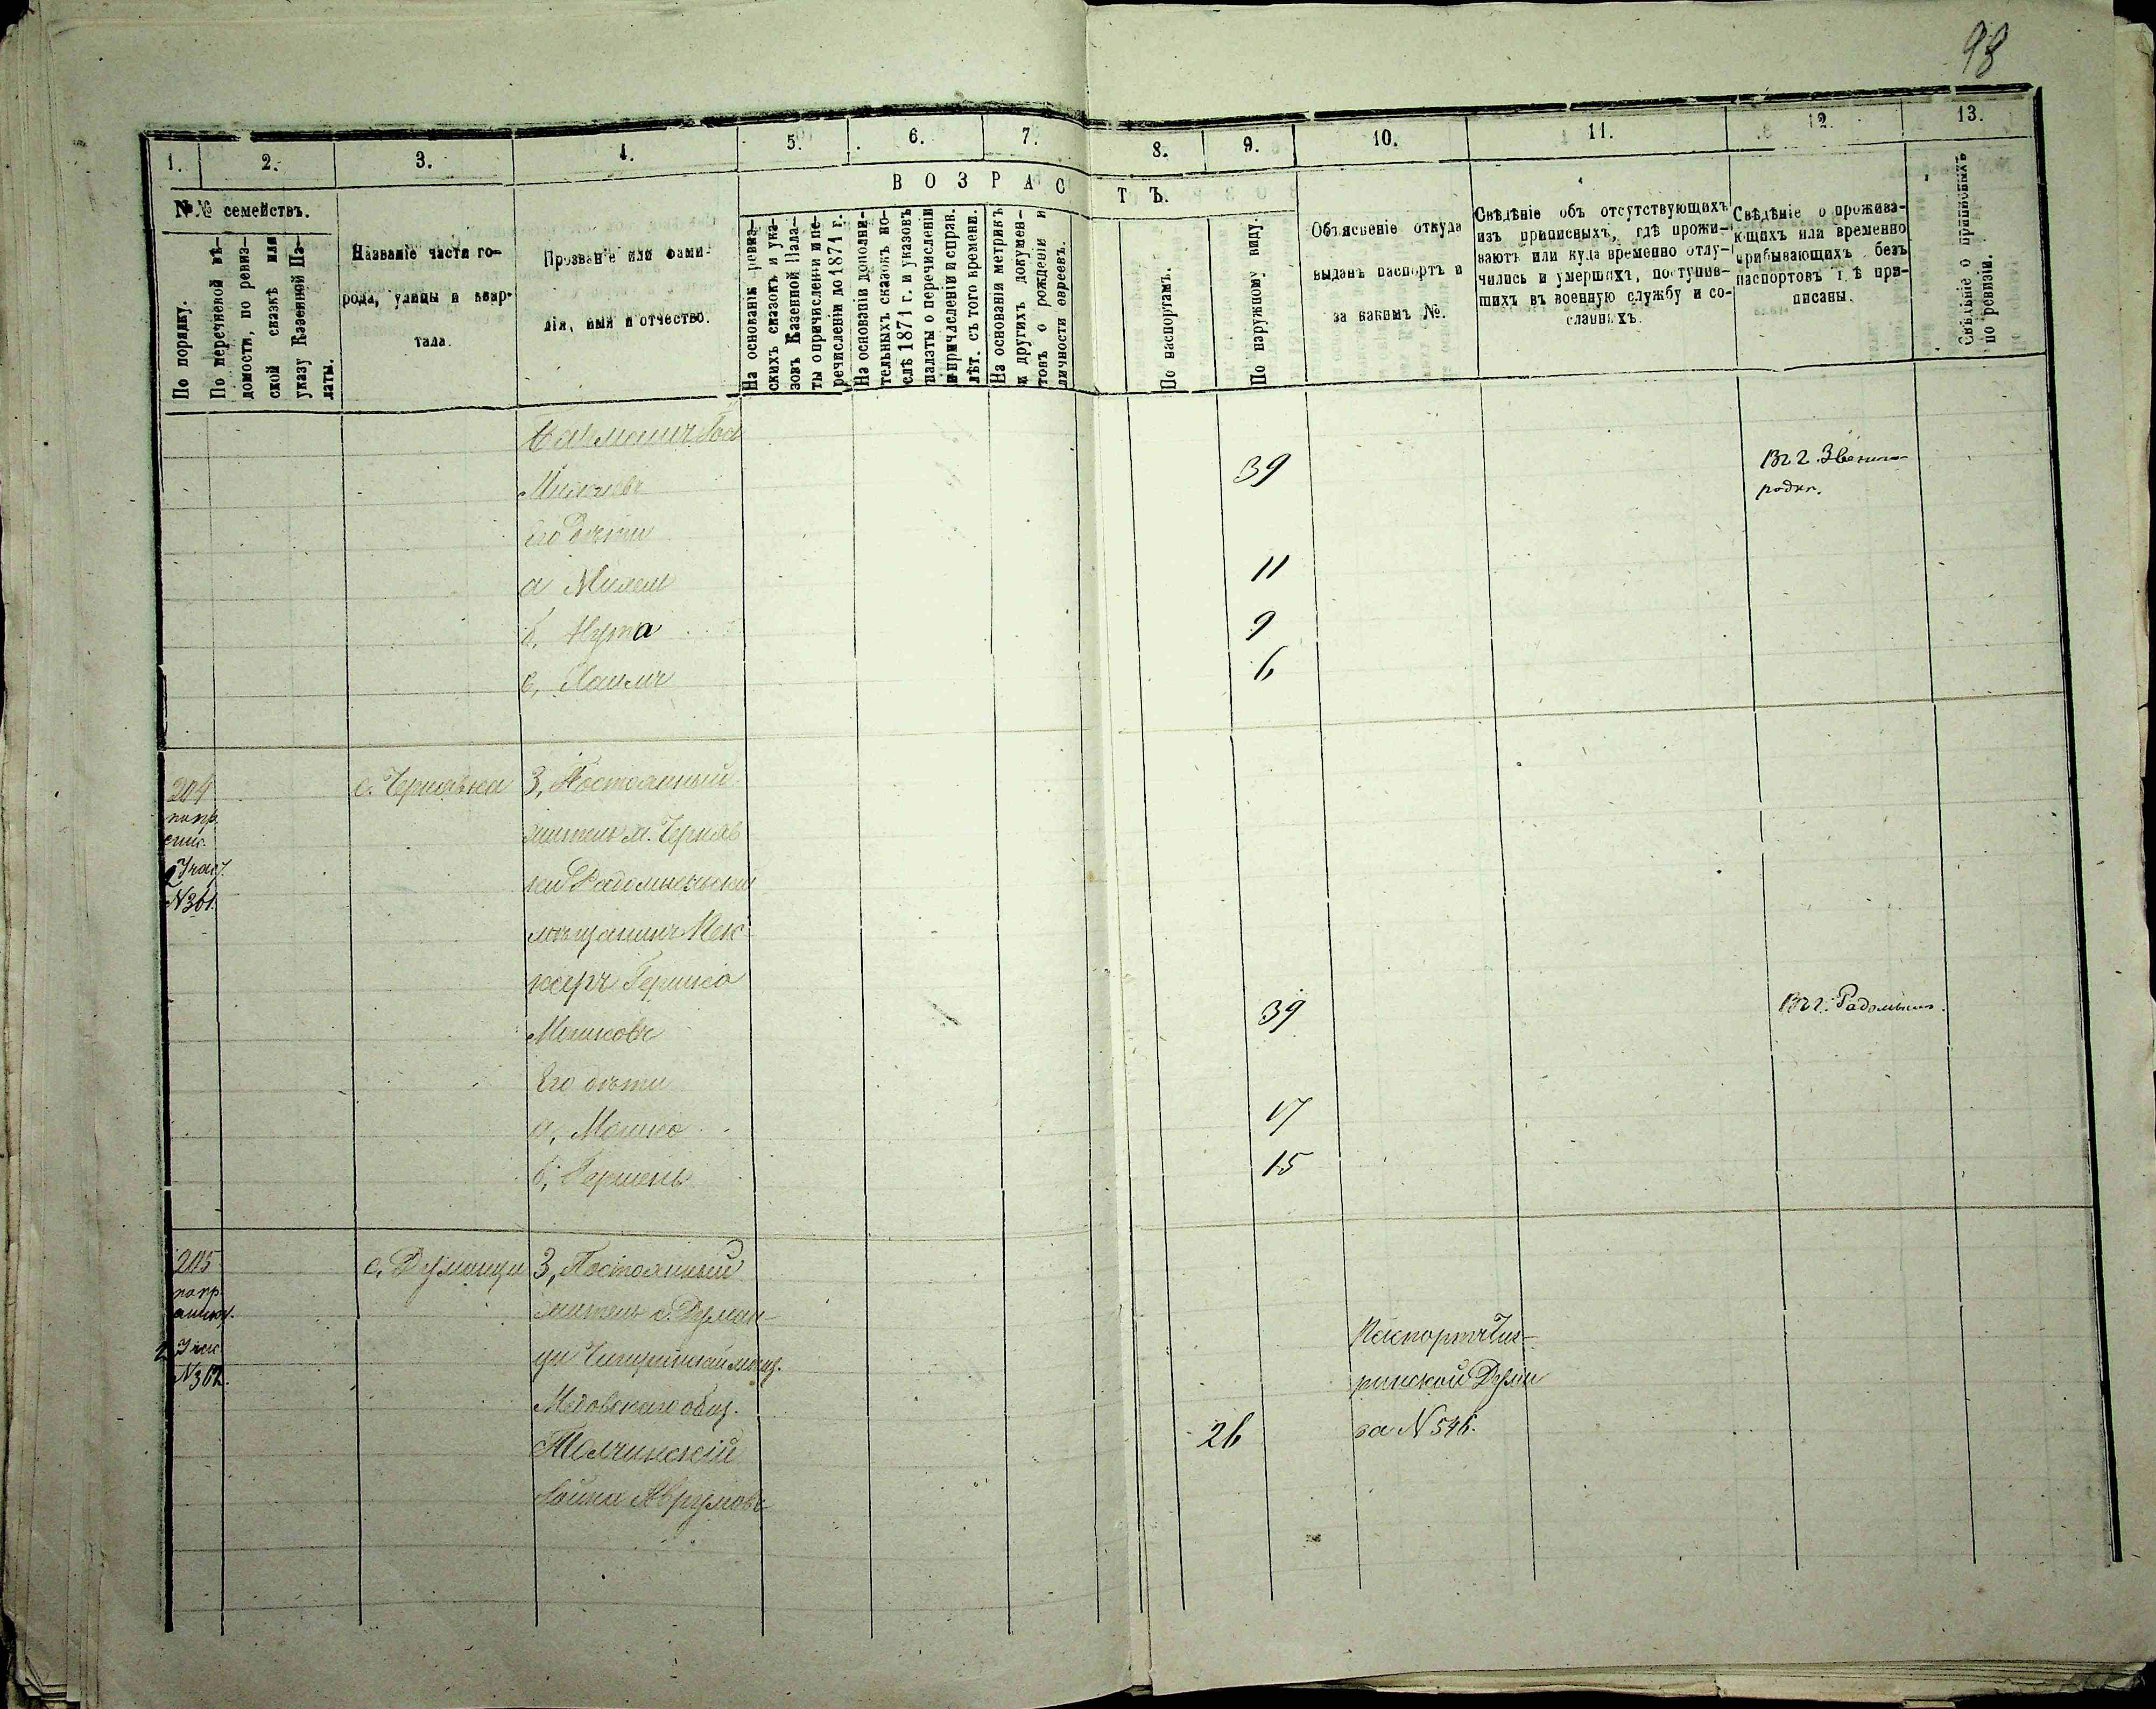 98
1.
2.
3.
4.
5.
6.
7.
8.
9.
10.
11.
12.
13.
№№ семействъ.
По порядку.
По перечневой вѣ-
домости, по ревиз-
ской сказкѣ или
указу Казенной Па-
латы.
Названіе части го-
рода, улицы и квар-
тала.
Прозваніе или фами-
лія, имя и отчество.
ВОЗРАСТЪ.
На основаніи ревиз-
скихъ сказокъ и ука-
зовъ Казенной Пала-
ты о причисленіи и пе-
речисленіи до 1871 г.
На основаніи дополни-
тельныхъ сказокъ по-
слѣ 1871 г. и указовъ
палаты о перечисленіи
и причисленіи и справ.
лѣт. съ того времени.
На основаніи метрикъ
и другихъ докумен-
товъ о рожденіи и
личности евреевъ.
По паспортамъ.
По наружному виду.
Объясненіе откуда
выданъ паспортъ и
за какимъ №.
Свѣдѣніе объ отсутствующихъ
изъ приписныхъ, гдѣ прожи-
ваютъ или куда временно отлу-
чились и умершихъ, поступив-
шихъ въ военную службу и со-
сланныхъ.
Свѣдѣніе о прожива-
ющихъ или временно
прибывающихъ безъ
паспортовъ гдѣ при-
писаны.
Свѣдѣніе о приписныхъ
по ревизіи.
39
Въ г. Звениго-
родкѣ.
Его дѣти
а
11
б, Нута
9
в, Хаимъ
6
204
по пр.
с. Чернявка
3, Постоянный
житель м. Черняв
ки Радомысльскій
мѣщанинъ
Гершко
Мошковъ
39
Въ г. Радомыслѣ.
Его дѣти
а, Мошко
17
б,
15
205
по пр.
№362.
с. Думанцы
3, Постоянный
житель с. Думан-
цы Чигиринскій мѣщ.
Медовскаго общ.
26
Паспортъ Чиг-
ринской Думы
за N546.
Аврумовъ